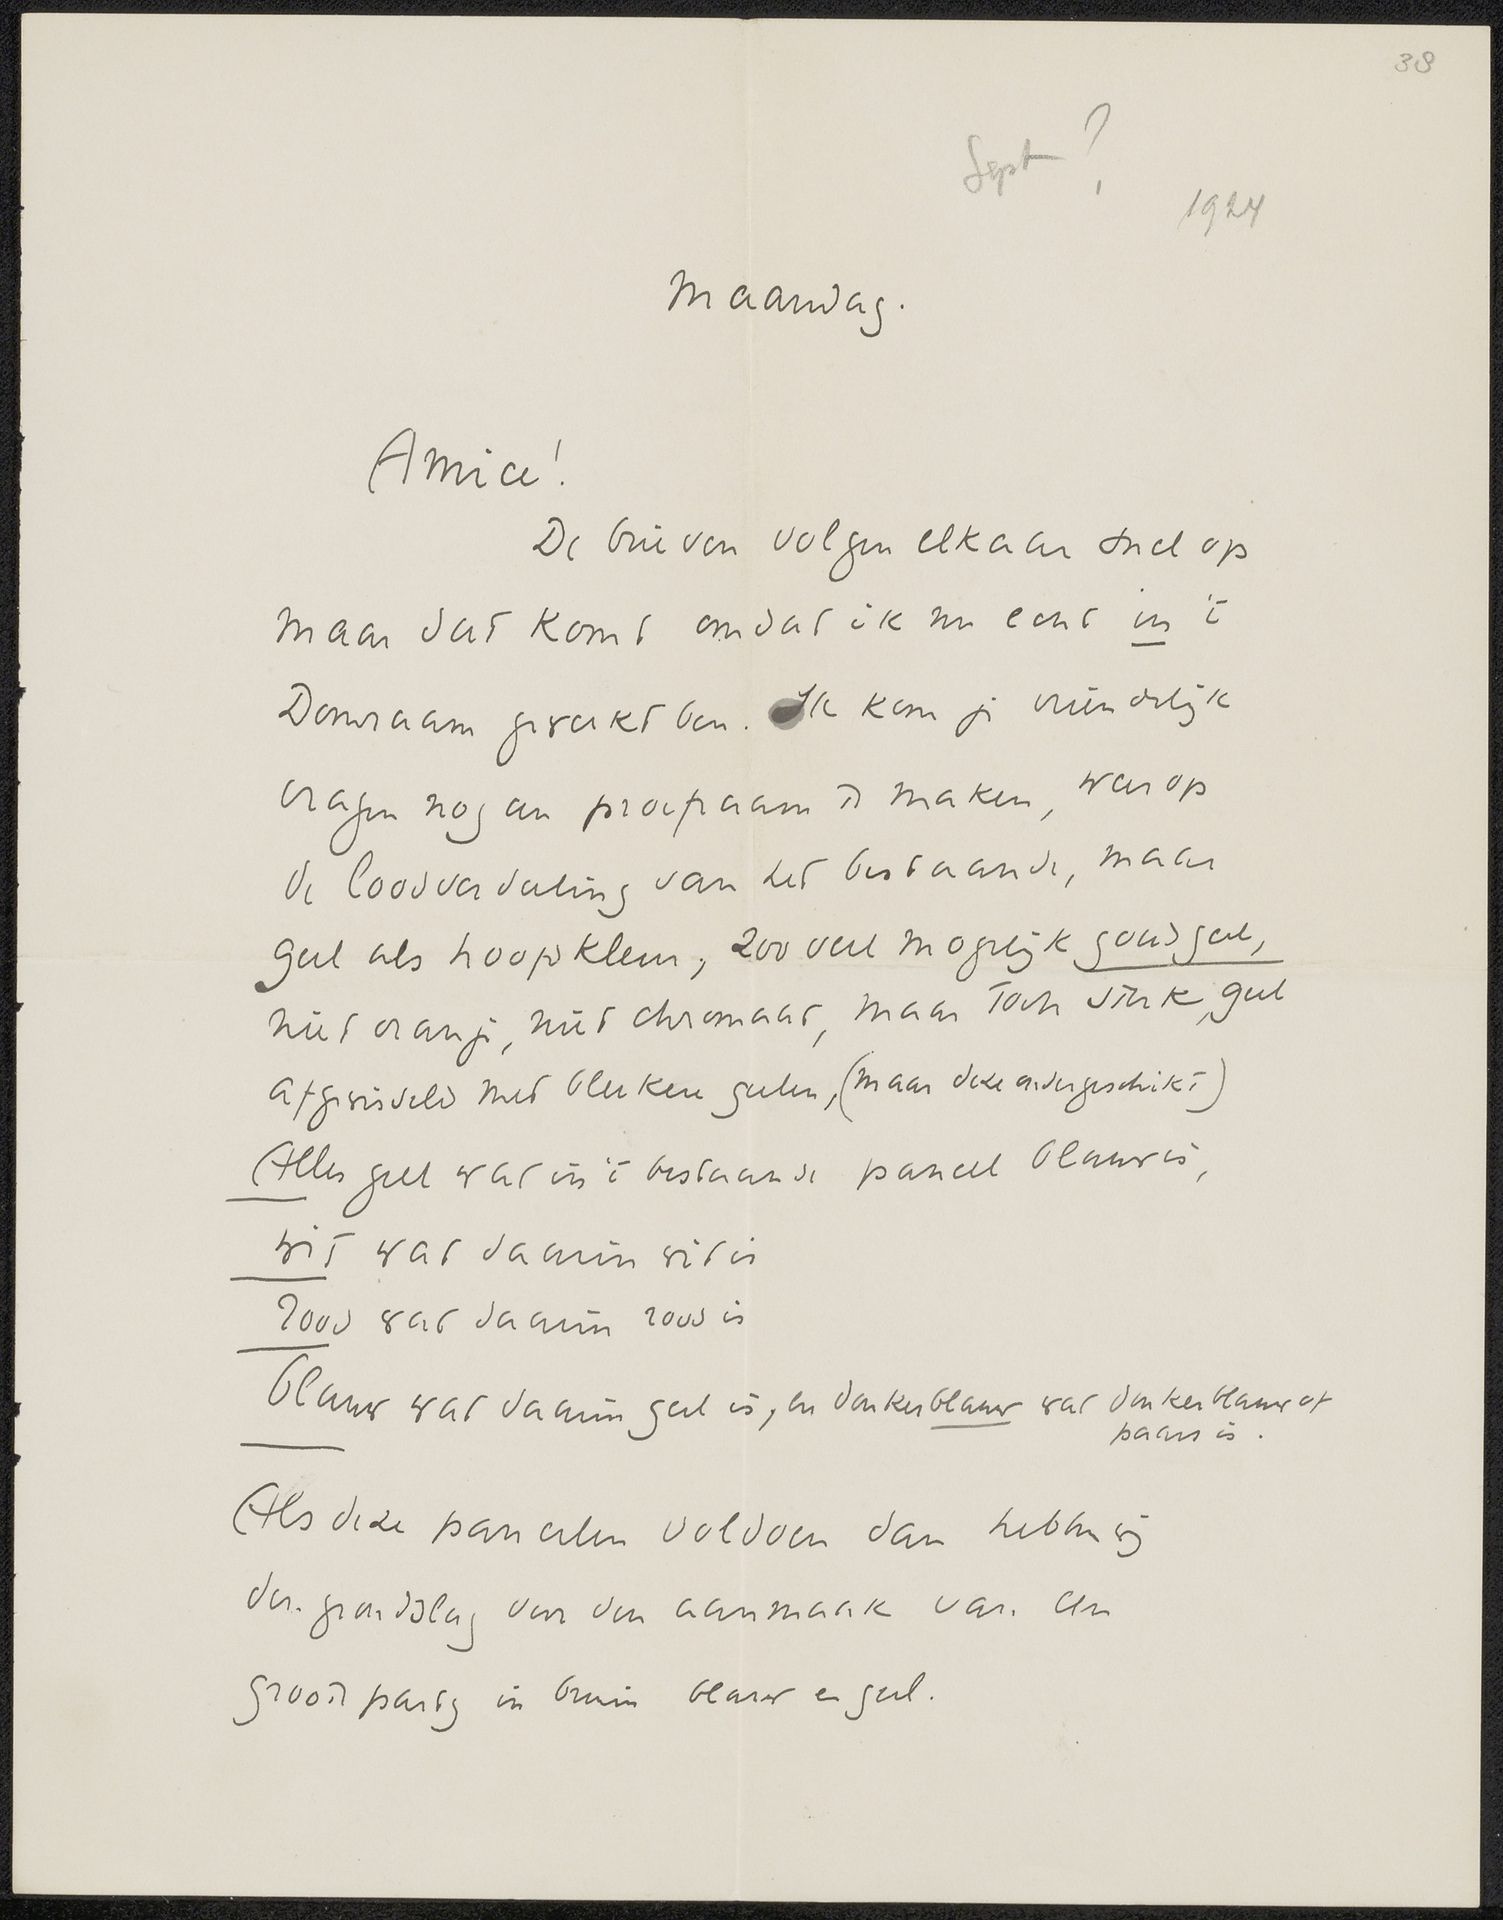 38
Sept ?
1924
Maandag.
Amice!
De brieven volgen elkaar snel op
maar dat komt omdat ik nu echt in 't
Domraam gewerkt ben. Ik kom je vriendelijk
vragen nog een proefraam te maken, waarop
de loodverdeeling van het bestaande, maar
geel als hoofdkleur, zoo veel mogelijk goudgeel,
niet oranje, niet chromaat, maar toch sterk geel
afgewisseld met bleekere geelen, (maar deze ondergeschikt)
Alles geel wat in 't bestaande paneel blauw is,
wit wat daarin wit is
rood wat daarin rood is
blauw wat daarin geel is, en donkerblauw wat donkerblauw of
paars is.
Als deze paneelen voldoen dan hebben wij
den grondslag voor den aanmaak van een
groote partij in bruin blauw en geel.